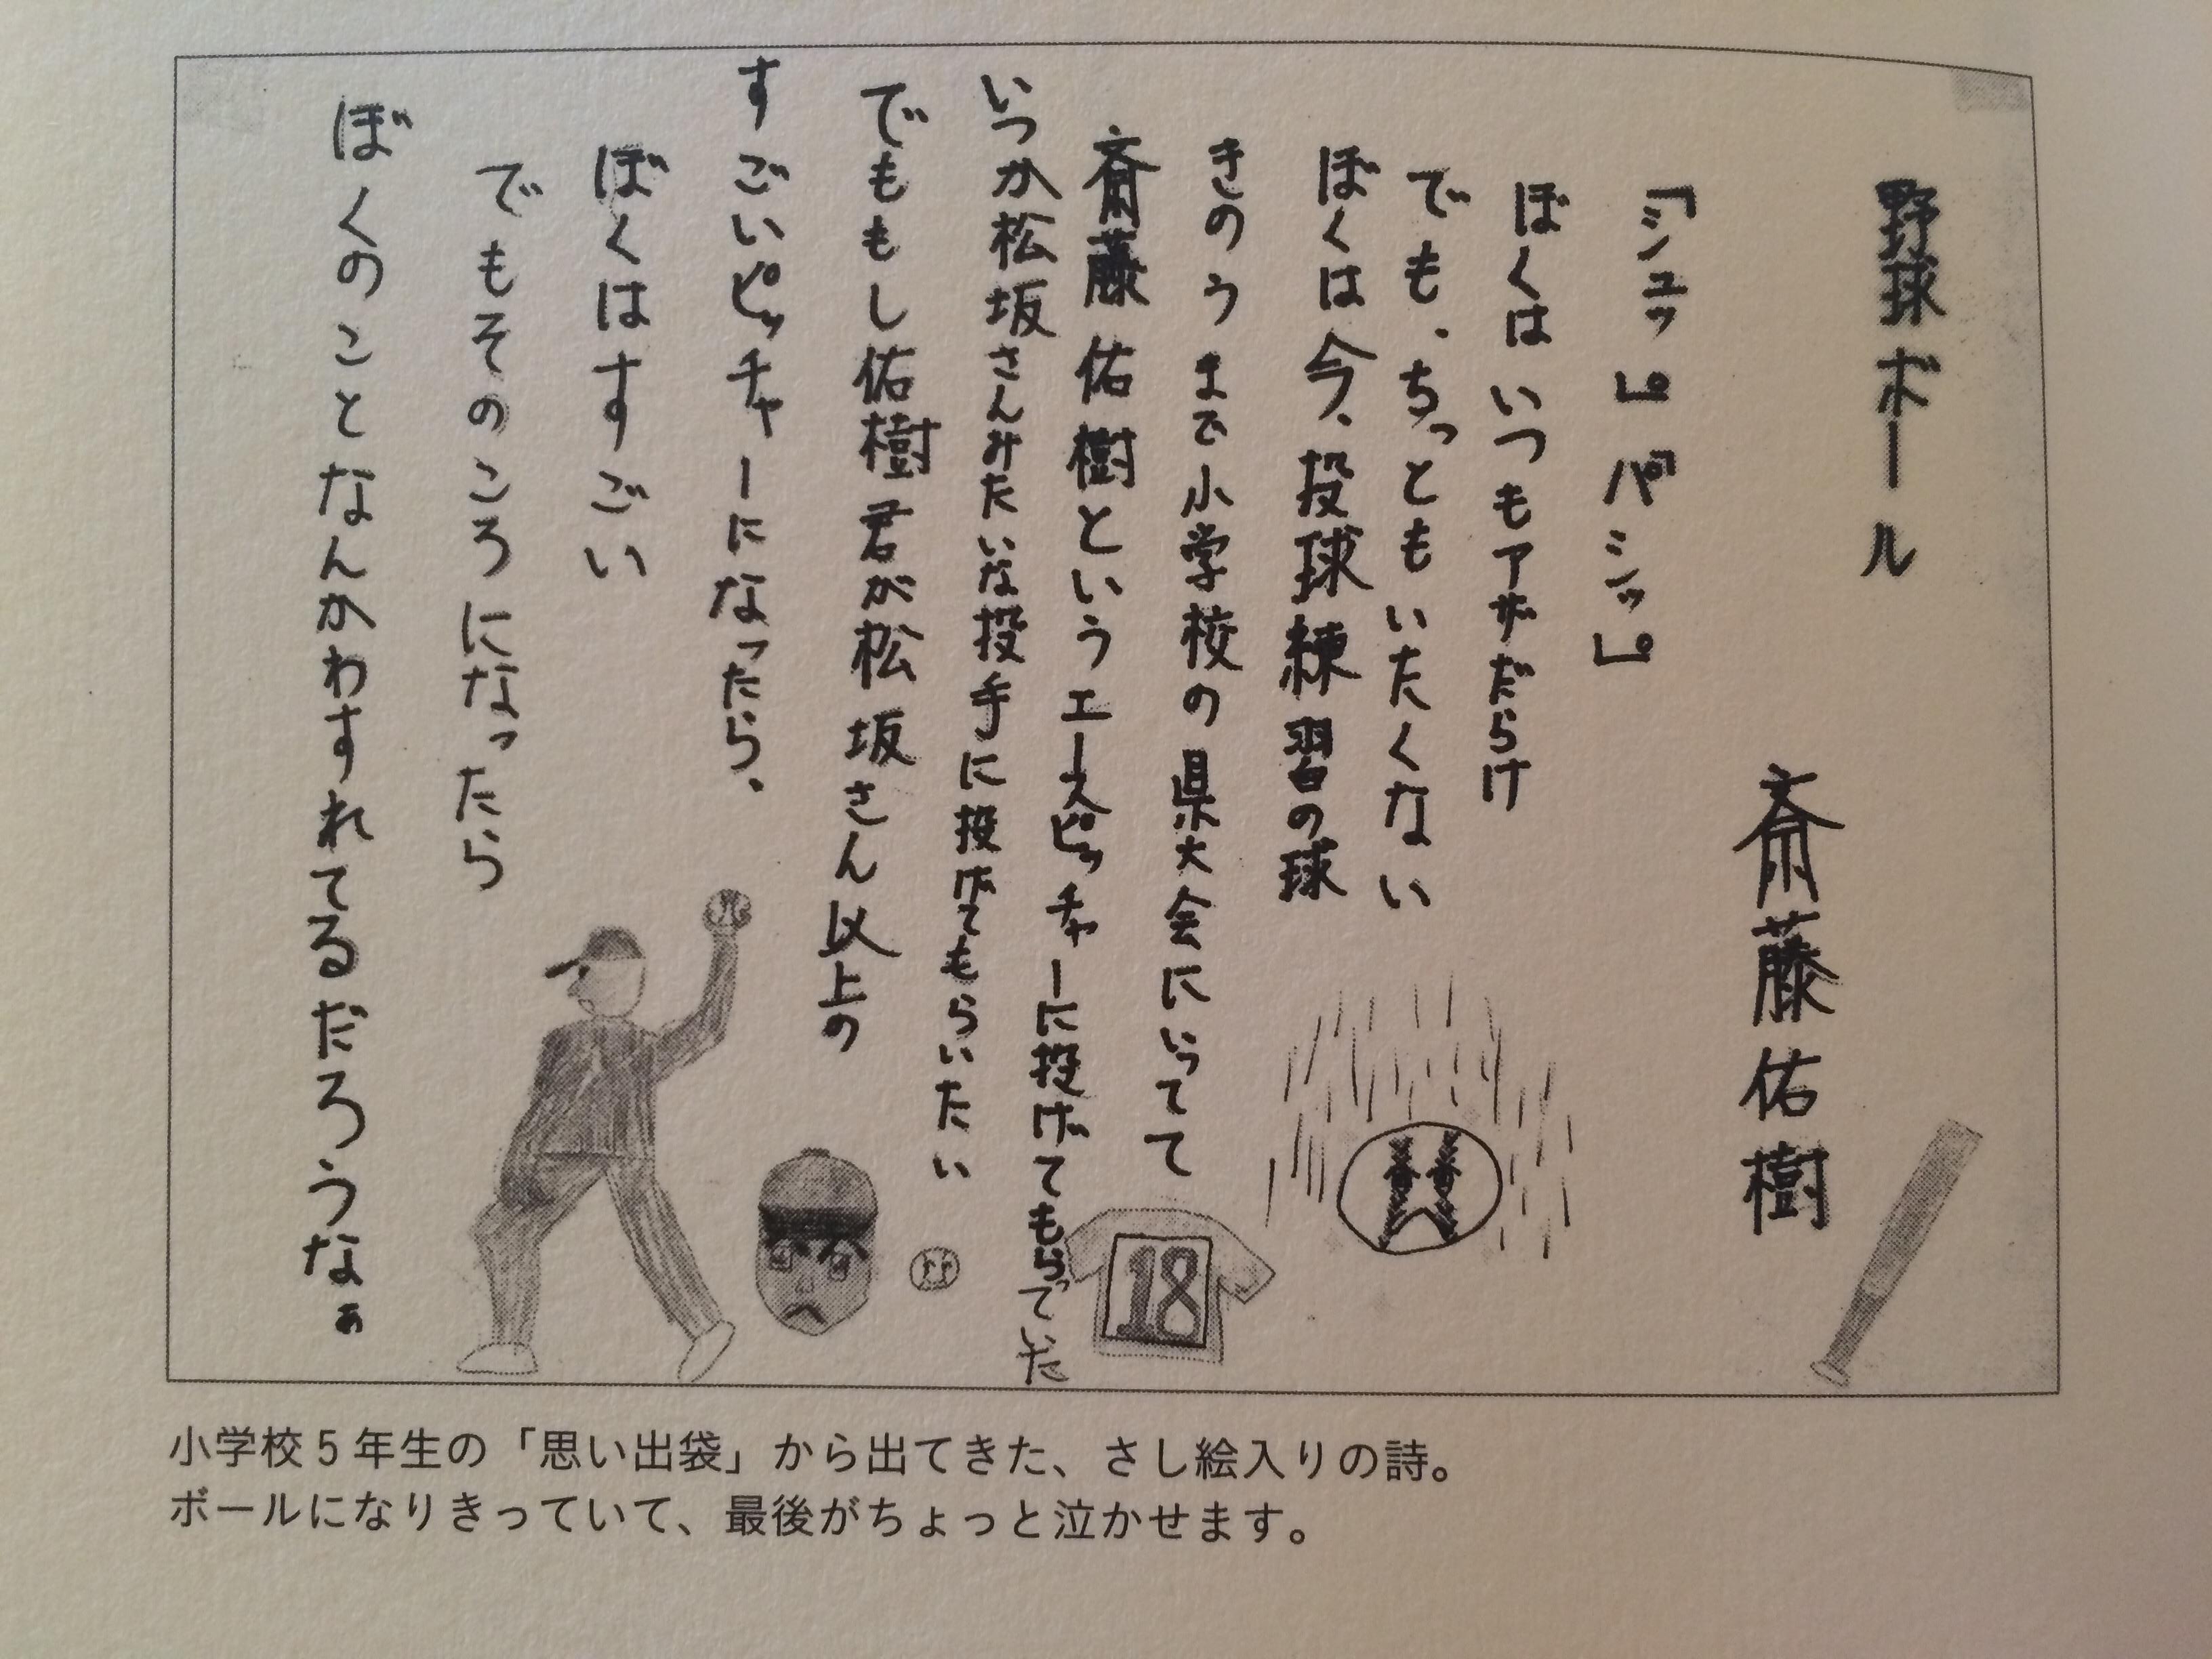 野球ボール
斎藤佑樹
「シュッ。」「パシッ。」
ぼくはいつもアザだらけ
でも、ちっともいたくない
ぼくは今、投球練習の球
きのうまで小学校の県大会にいってて
斎藤佑樹というエースピッチャーに投げてもらっていた
いつか松坂さんみたいな投手に投げてもらいたい
でももし佑樹君が松坂さん以上の
すごいピッチャーになったら、
ぼくはすごい
でもそのころになったら
ぼくのことなんかわすれてるだろうなぁ
18
小学校5年生の「思い出袋」から出てきた、さし絵入りの詩。
ボールになりきっていて、最後がちょっと泣かせます。